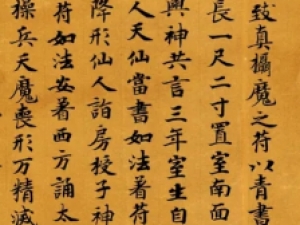 致真攝魔之符以青書
長一尺二寸置室南面
與神共言三年室生自
人天仙當書如法著符
降形仙人詣房授子神
符如法安著西方誦太
操兵天魔喪形万精滅